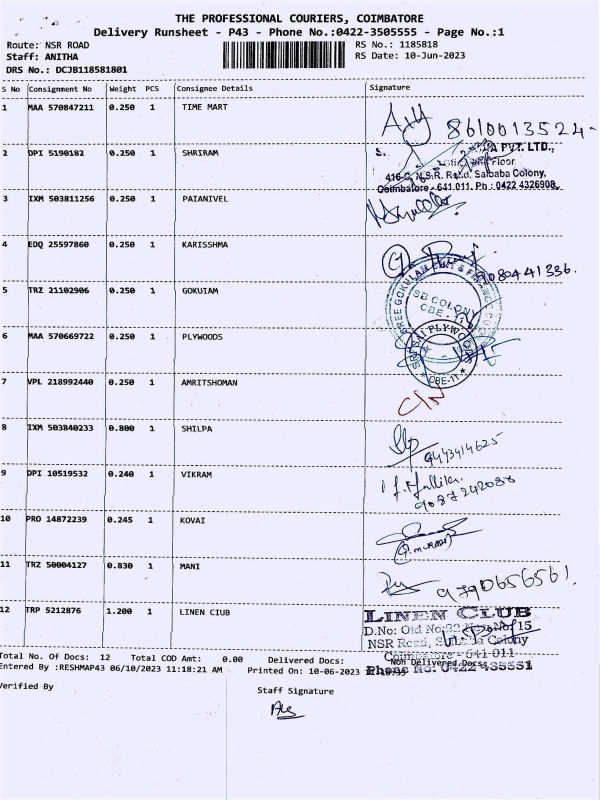 THE PROFESSIONAL COURIERS, COIMBATORE
Delivery Runsheet - P43 - Phone No.:0422-3505555 - Page No.:1
Route: NSR ROAD
RS No.: 1185818
Staff: ANITHA
RS Date: 10-Jun-2023
DRS No.: DCJB118581801
S No Consignment No Weight PCS Consignee Details Signature
1 MAA 570847211 0.250 1 TIME MART
8610013524-
2 DPI 5190182 0.250 1 SHRIRAM
PVT. LTD.,
Floor
416-C, N.S.R. Road, Saibaba Colony,
Coimbatore - 641 011. Ph : 0422 4326908
3 IXM 503811256 0.250 1 PAIANIVEL
4 EDQ 25597860 0.250 1 KARISSHMA
080441336.
5 TRZ 21102906 0.250 1 GOKUIAM
SB COLONY
CBE -
6 MAA 570669722 0.250 1 PLYWOODS
SRI SAI PLYWOODS
CBE-11
7 VPL 218992440 0.250 1 AMRITSHOMAN
C/N
8 IXM 503840233 0.800 1 SHILPA
9443414625
9 DPI 10519532 0.240 1 VIKRAM
Mallika
9087242088
10 PRO 14872239 0.245 1 KOVAI
11 TRZ 50004127 0.830 1 MANI
9790656561.
12 TRP 5212876 1.200 1 LINEN CIUB
LINEN CLUB
D.No: Old No: 15
NSR Road, Colony
Coimbatore - 641 011
Phone No: 0422
Total No. Of Docs: 12 Total COD Amt: 0.00 Delivered Docs: Non Delivered Docs:
Entered By :RESHMAP43 06/10/2023 11:18:21 AM Printed On: 10-06-2023
Verified By
Staff Signature